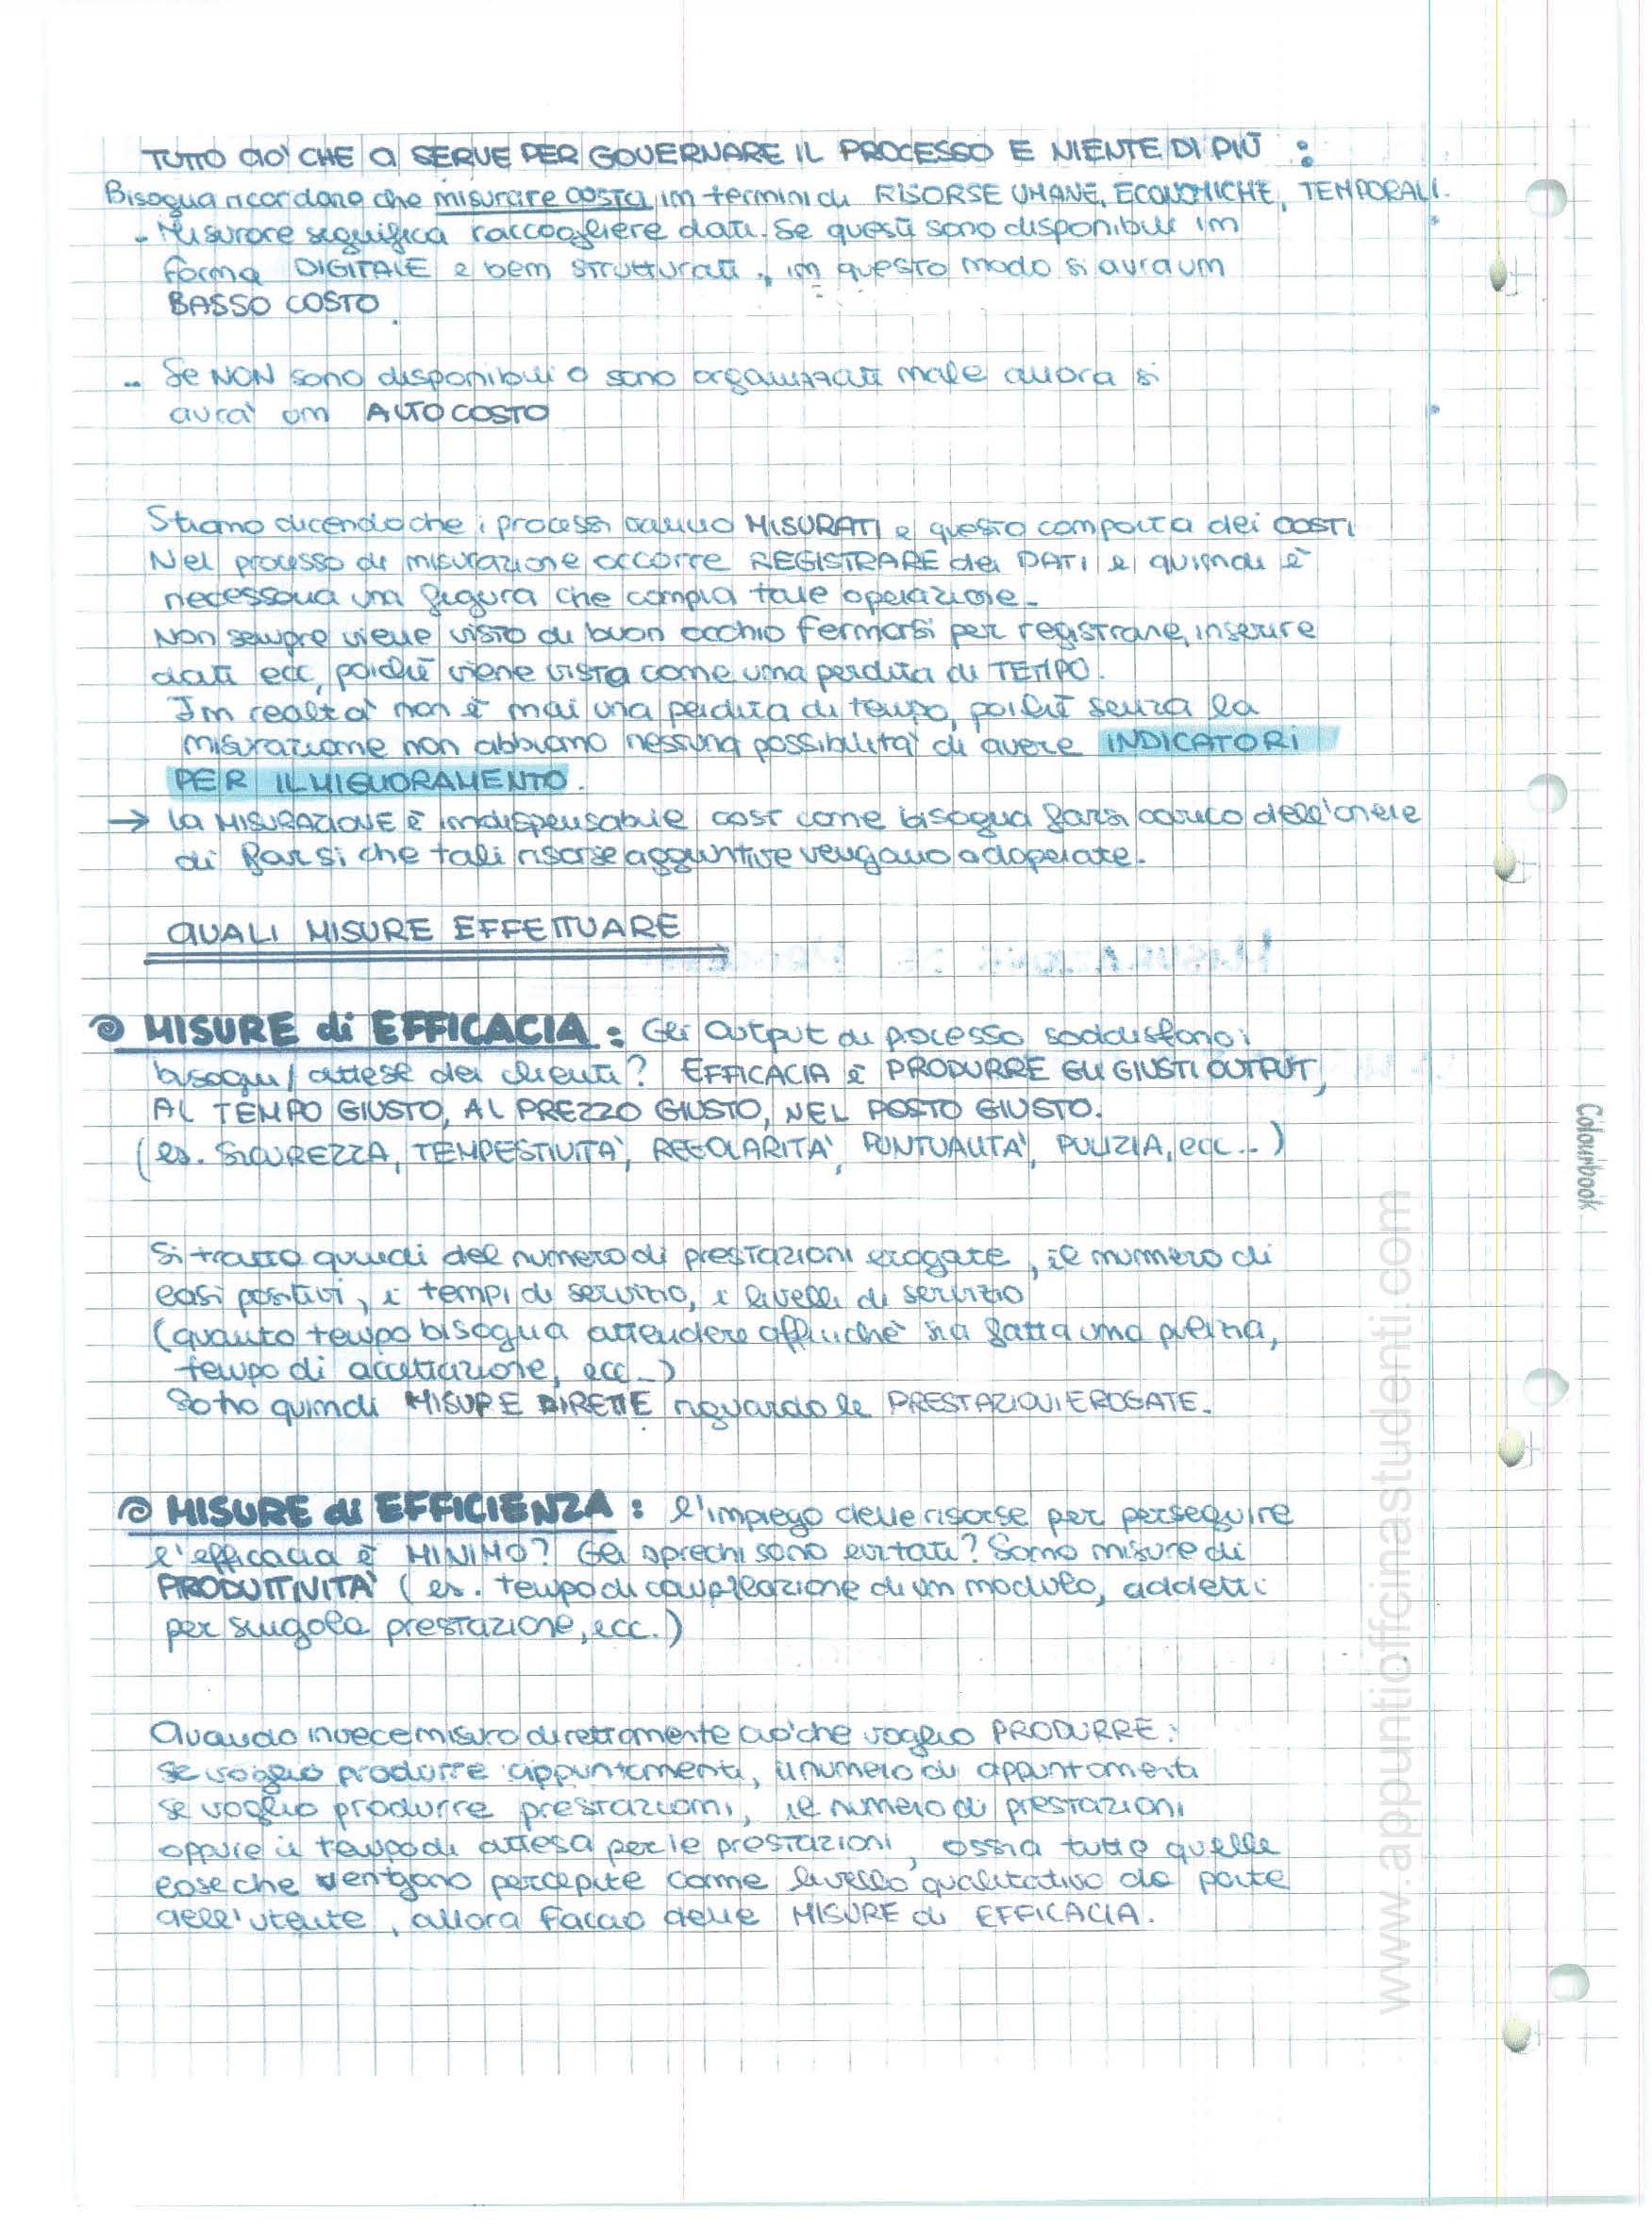 TUTTO CIO' CHE CI SERVE PER GOVERNARE IL PROCESSO E NIENTE DI PIÙ :
Bisogna ricordare che misurare costa in termini di RISORSE UMANE, ECONOMICHE, TEMPORALI.
- Misurare significa raccogliere dati. Se questi sono disponibili in
forma DIGITALE e ben strutturati, in questo modo si avrà un
BASSO COSTO.
- Se NON sono disponibili o sono organizzati male allora si
avrà un ALTO COSTO
Stiamo dicendo che i processi vanno MISURATI e questo comporta dei COSTI
Nel processo di misurazione occorre REGISTRARE dei DATI e quindi è
necessaria una figura che compia tale operazione.
Non sempre viene visto di buon occhio fermarsi per registrare, inserire
dati ecc, poichè viene vista come una perdita di TEMPO.
In realtà non è mai una perdita di tempo, poichè senza la
misurazione non abbiamo nessuna possibilità di avere INDICATORI
PER IL MIGLIORAMENTO.
→ La MISURAZIONE è indispensabile così come bisogna farsi carico dell'onere
di far si che tali risorse aggiuntive vengano adoperate.
QUALI MISURE EFFETTUARE
MISURE di EFFICACIA : Gli output di processo soddisfano i
bisogni / attese dei clienti? EFFICACIA è PRODURRE GLI GIUSTI OUTPUT,
AL TEMPO GIUSTO, AL PREZZO GIUSTO, NEL POSTO GIUSTO.
(es. SICUREZZA, TEMPESTIVITA', REGOLARITA', PUNTUALITA', PULIZIA, ecc...)
Si tratta quindi del numero di prestazioni erogate, il numero di
casi positivi, i tempi di servizio, i livelli di servizio
(quanto tempo bisogna attendere affinchè sia fatta una
tempo di accettazione, ecc...)
Sono quindi MISURE DIRETTE riguardo le PRESTAZIONI EROGATE.
MISURE di EFFICIENZA : l'impiego delle risorse per perseguire
l'efficacia è MINIMO? Gli sprechi sono evitati? Sono misure di
PRODUTTIVITA' (es. tempo di compilazione di un modulo, addetti
per singola prestazione, ecc.)
Quando invece misuro direttamente ciò che voglio PRODURRE:
se voglio produrre appuntamenti, il numero di appuntamenti
se voglio produrre prestazioni, il numero di prestazioni
oppure il tempo di attesa per le prestazioni, ossia tutte quelle
cose che vengono percepite come livello qualitativo da parte
dell'utente, allora faccio delle MISURE di EFFICACIA.
Colourbook
www.appuntiofficinastudenti.com